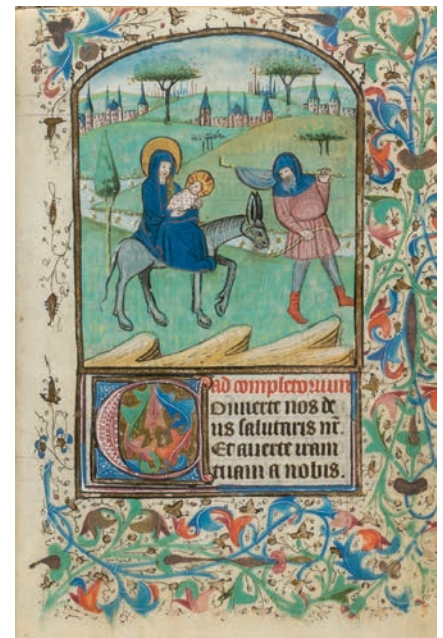 ad completorium
Conuerte nos de
us salutaris nr̄.
Et auerte iram
tuam a nobis.